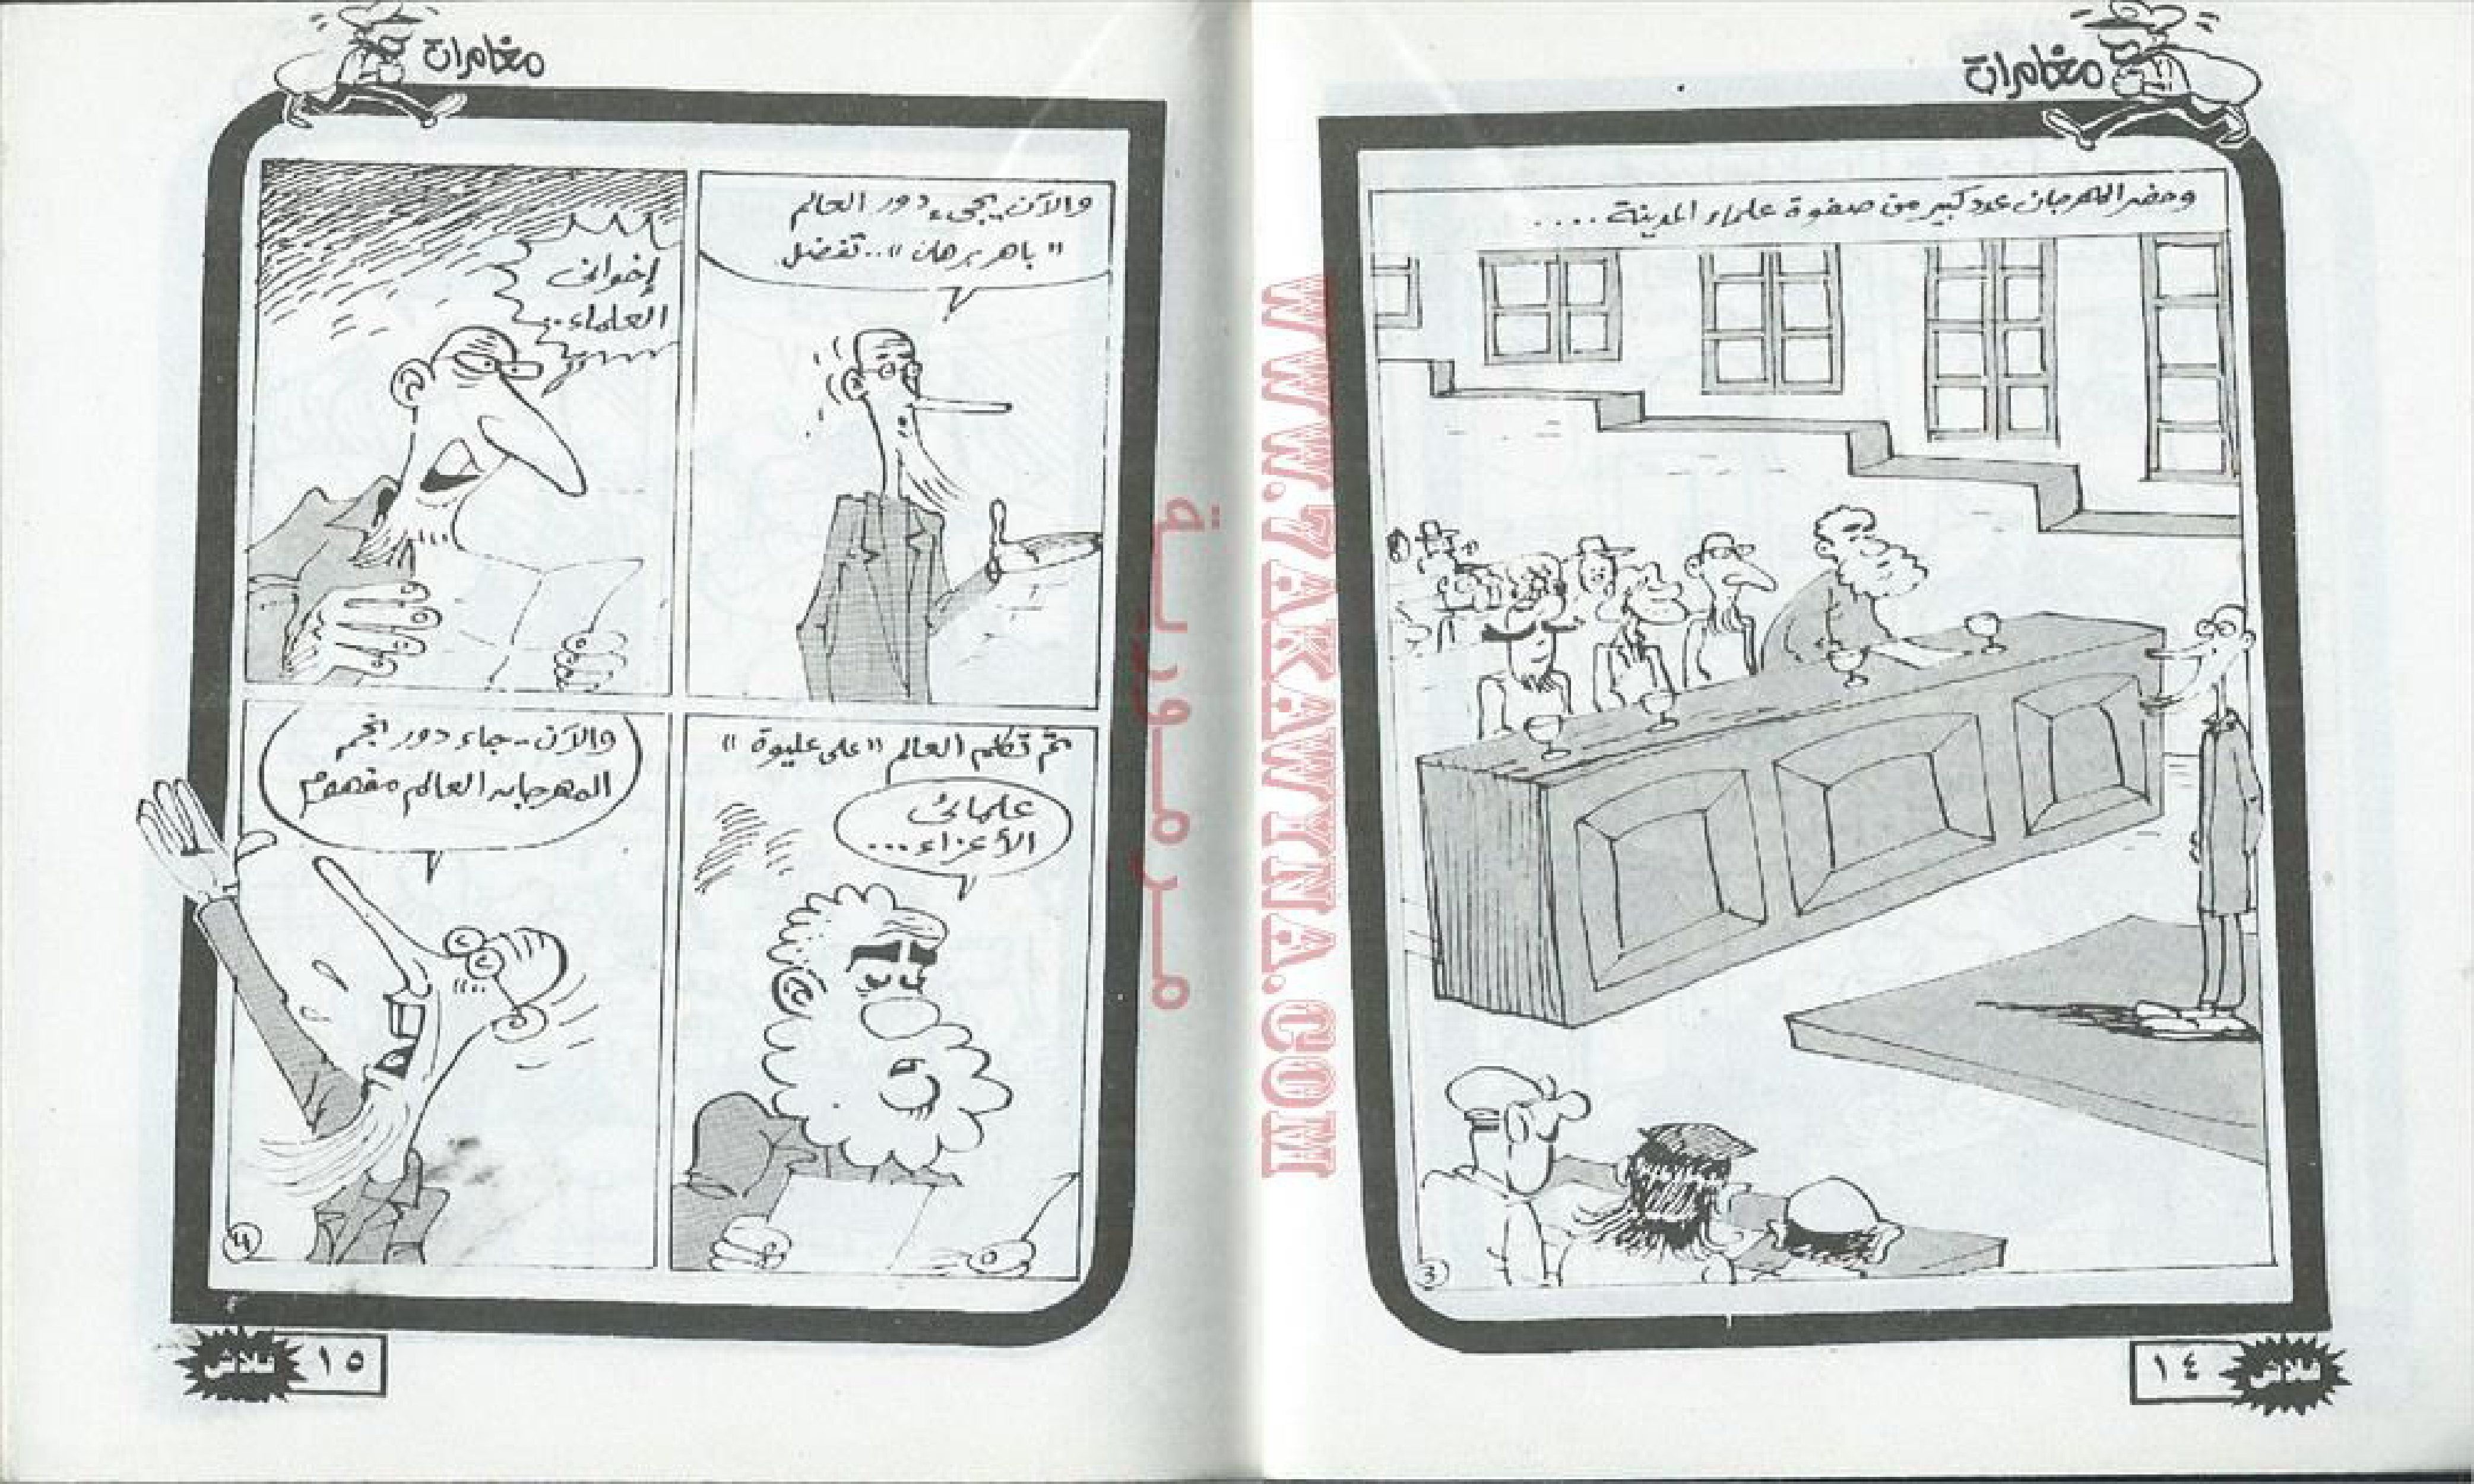 مغامرات
وحضر المهرجان عدد كبير من صفوة علماء المدينة....
3
١٤
فلاش
WWW.7AKAWINA.COM
مرمورية
مغامرات
والآن.. يجىء دور العالم
"باهر برهان".. تفضل
إخوانى
العلماء..
ثم تكلم العالم "على عليوة"
علمائى
الأعزاء...
والآن.. جاء دور نجم
المهرجان العالم مفهوم
١٥
فلاش